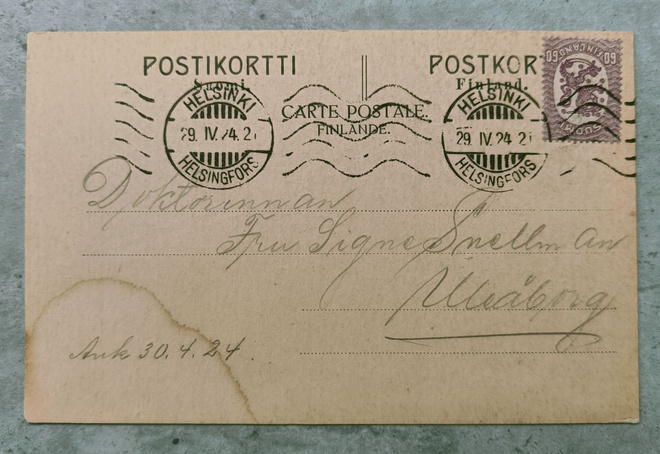 POSTIKORTTI POSTKORT
Suomi. Finland.
CARTE POSTALE.
FINLANDE.
HELSINKI
29. IV. 24. 2
HELSINGFORS
HELSINKI
29. IV. 24. 2
HELSINGFORS
60 FINLAND 60
SUOMI
Doktorinnan
Fru Signe Snellman
Uleåborg
Ank 30.4.24.